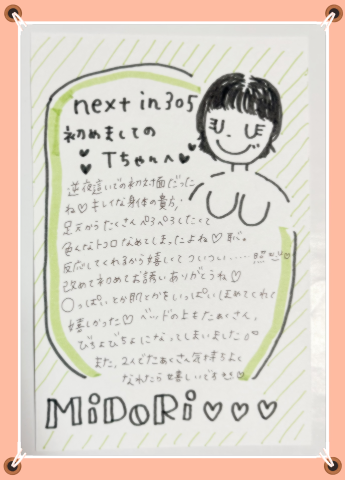 next in 305
初めましての
Tちゃんへ♥
逆夜這いでの初対面だった
ね♡キレイな身体の貴方♪
足元からたくさんペろペろしたくて
色んなトコロなめてしまったよね♡恥。
反応してくれるから嬉しくてついつい・・・・・
改めて初めてお誘いありがとうね♡
◯っぱいとか肌とかをいっぱいほめてくれて
嬉しかった♡ベッドの上もたくさん、
びちょびちょになってしまいました
また、2人でたあくさん気持ちよく
なれたら嬉しいです♡
MiDORi♡♡♡